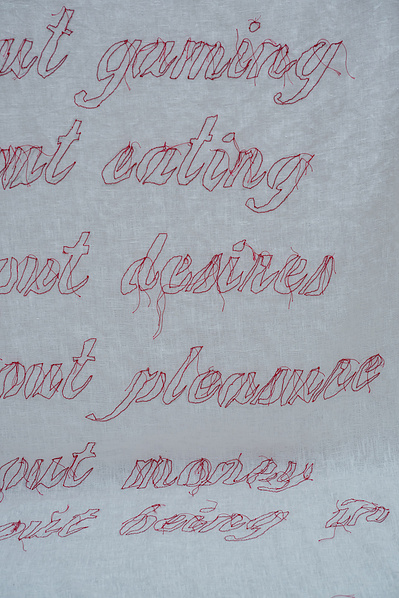 out gaming
out eating
out desires
out pleasure
out money
out being in